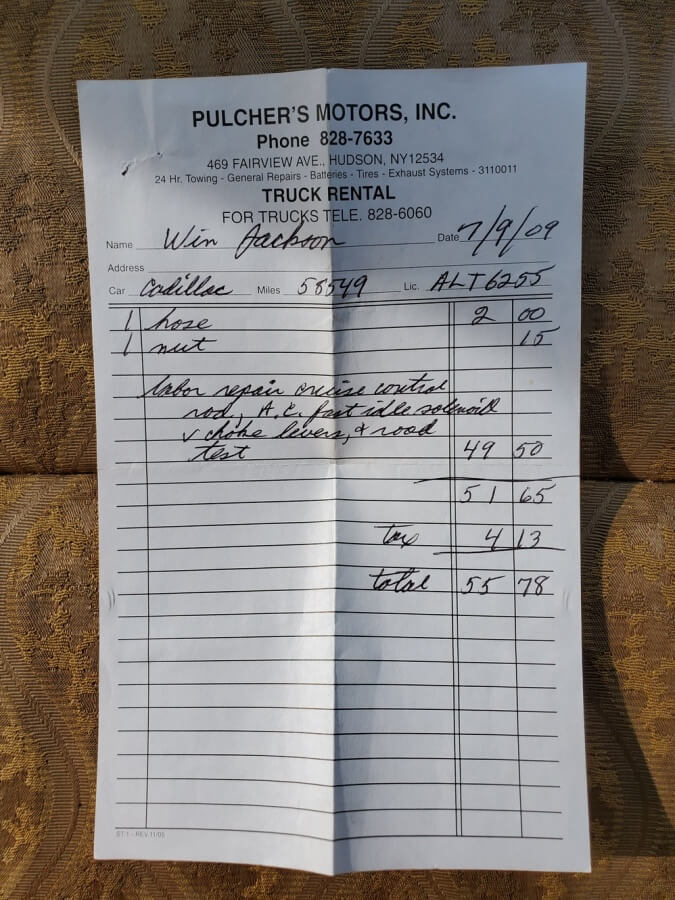 PULCHER'S MOTORS, INC.
Phone 828-7633
469 FAIRVIEW AVE., HUDSON, NY12534
24 Hr. Towing - General Repairs - Batteries - Tires - Exhaust Systems - 3110011
TRUCK RENTAL
FOR TRUCKS TELE. 828-6060
Name Win Jackson Date 7/9/09
Address
Car Cadillac Miles 58549 Lic. ALT6255
1 hose 2 00
1 nut 15
labor repair cruise control
rod, A.C. fast idle solenoid
✓ choke levers, & road
test 49 50
51 65
tax 4 13
total 55 78
ST 1 - REV.11/05